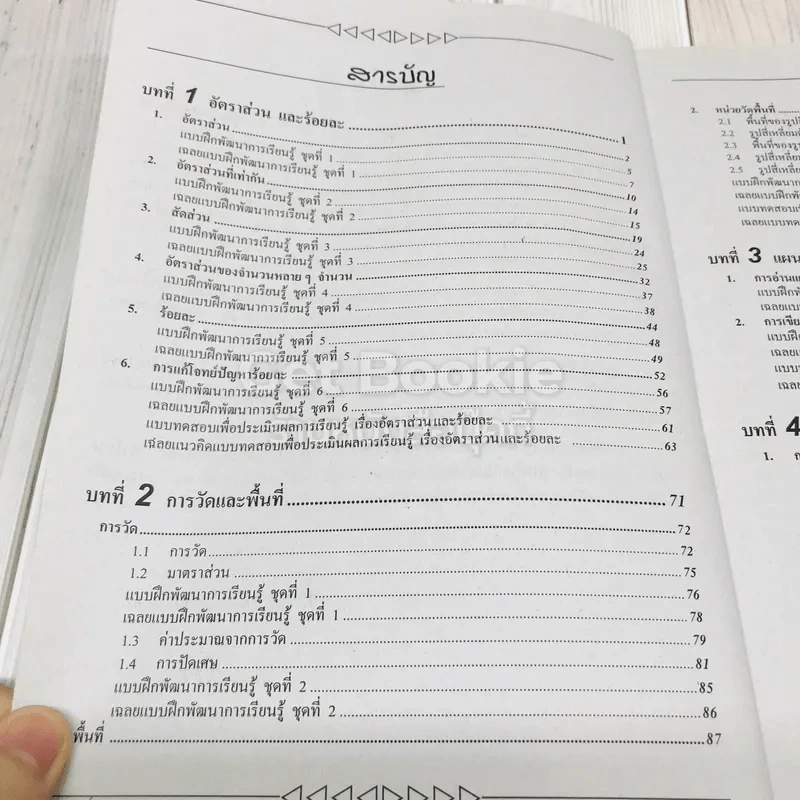 สารบัญ
บทที่ 1 อัตราส่วน และร้อยละ 1
1. อัตราส่วน 2
แบบฝึกพัฒนาการเรียนรู้ ชุดที่ 1 5
เฉลยแบบฝึกพัฒนาการเรียนรู้ ชุดที่ 1 7
2. อัตราส่วนที่เท่ากัน 10
แบบฝึกพัฒนาการเรียนรู้ ชุดที่ 2 14
เฉลยแบบฝึกพัฒนาการเรียนรู้ ชุดที่ 2 15
3. สัดส่วน 19
แบบฝึกพัฒนาการเรียนรู้ ชุดที่ 3 24
เฉลยแบบฝึกพัฒนาการเรียนรู้ ชุดที่ 3 25
4. อัตราส่วนของจำนวนหลาย ๆ จำนวน 32
แบบฝึกพัฒนาการเรียนรู้ ชุดที่ 4 37
เฉลยแบบฝึกพัฒนาการเรียนรู้ ชุดที่ 4 38
5. ร้อยละ 44
แบบฝึกพัฒนาการเรียนรู้ ชุดที่ 5 48
เฉลยแบบฝึกพัฒนาการเรียนรู้ ชุดที่ 5 49
6. การแก้โจทย์ปัญหาร้อยละ 52
แบบฝึกพัฒนาการเรียนรู้ ชุดที่ 6 56
เฉลยแบบฝึกพัฒนาการเรียนรู้ ชุดที่ 6 57
แบบทดสอบเพื่อประเมินผลการเรียนรู้ เรื่องอัตราส่วนและร้อยละ 61
เฉลยแนวคิดแบบทดสอบเพื่อประเมินผลการเรียนรู้ เรื่องอัตราส่วนและร้อยละ 63
บทที่ 2 การวัดและพื้นที่ 71
การวัด 72
1.1 การวัด 72
1.2 มาตราส่วน 75
แบบฝึกพัฒนาการเรียนรู้ ชุดที่ 1 76
เฉลยแบบฝึกพัฒนาการเรียนรู้ ชุดที่ 1 78
1.3 ค่าประมาณจากการวัด 79
1.4 การปัดเศษ 81
แบบฝึกพัฒนาการเรียนรู้ ชุดที่ 2 85
เฉลยแบบฝึกพัฒนาการเรียนรู้ ชุดที่ 2 86
พื้นที่ 87
2. หน่วยวัดพื้นที่
2.1 พื้นที่ของรูปสี
2.2 รูปสี่เหลี่ยม
2.3 พื้นที่ของรูป
2.4 รูปสี่เหลี่ย
2.5 รูปสี่เหลี่ย
แบบฝึกพัฒนาก
เฉลยแบบฝึกพัฒ
แบบทดสอบเพื่อ
เฉลยแบบทดสอ
บทที่ 3 แผน
1. การอ่านแ
แบบฝึกพั
เฉลยแบ
2. การเขีย
แบบฝึ
เฉลยแ
แบบท
เฉลย
บทที่ 4
1. ก
Get Bookie